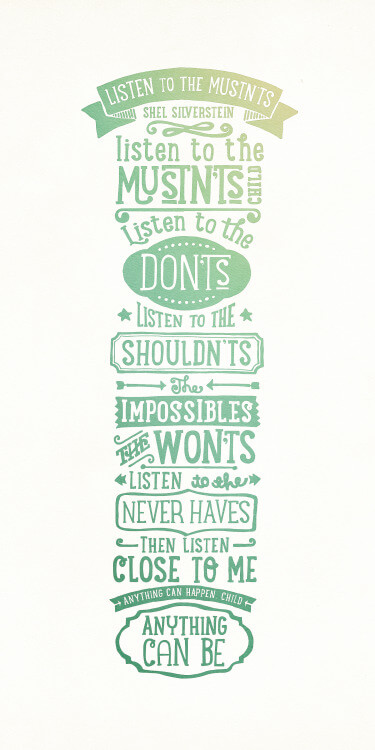 LISTEN TO THE MUSTN'TS
SHEL SILVERSTEIN
listen to the
MUSTN'TS CHILD
Listen to the
DON'TS
LISTEN TO THE
SHOULDN'TS
The
IMPOSSIBLES
THE WONTS
LISTEN to the
NEVER HAVES
THEN LISTEN
CLOSE TO ME
ANYTHING CAN HAPPEN CHILD
ANYTHING
CAN BE